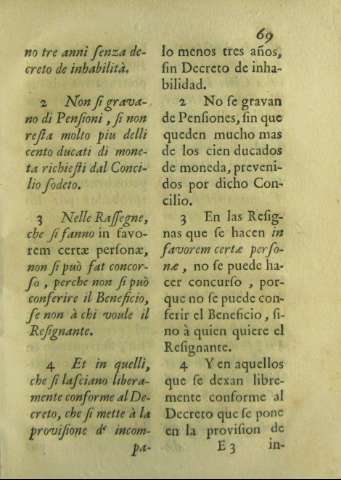 69
no tre anni ſenza de-
creto de inhabilità.
2 Non ſi grava-
no di Penſioni, ſi non
reſta molto piu delli
cento ducati di mone-
ta richieſti dal Conci-
lio ſodeto.
3 Nelle Raſſegne,
che ſi fanno in favo-
rem certæ perſonæ,
non ſi può fat concor-
ſo, perche non ſi può
conferire il Beneficio,
ſe non à chi voule il
Reſignante.
4 Et in quelli,
che ſi laſciano libera-
mente conforme al De-
creto, che ſi mette à la
proviſione d' incom-
pa-
lo menos tres años,
ſin Decreto de inha-
bilidad.
2 No ſe gravan
de Penſiones, ſin que
queden mucho mas
de los cien ducados
de moneda, preveni-
dos por dicho Con-
cilio.
3 En las Reſig-
nas que ſe hacen in
favorem certæ perſo-
næ, no ſe puede ha-
cer concurſo, por-
que no ſe puede con-
ferir el Beneficio, ſi-
no à quien quiere el
Reſignante.
4 Y en aquellos
que ſe dexan libre-
mente conforme al
Decreto que ſe pone
en la proviſion de
E 3 in-